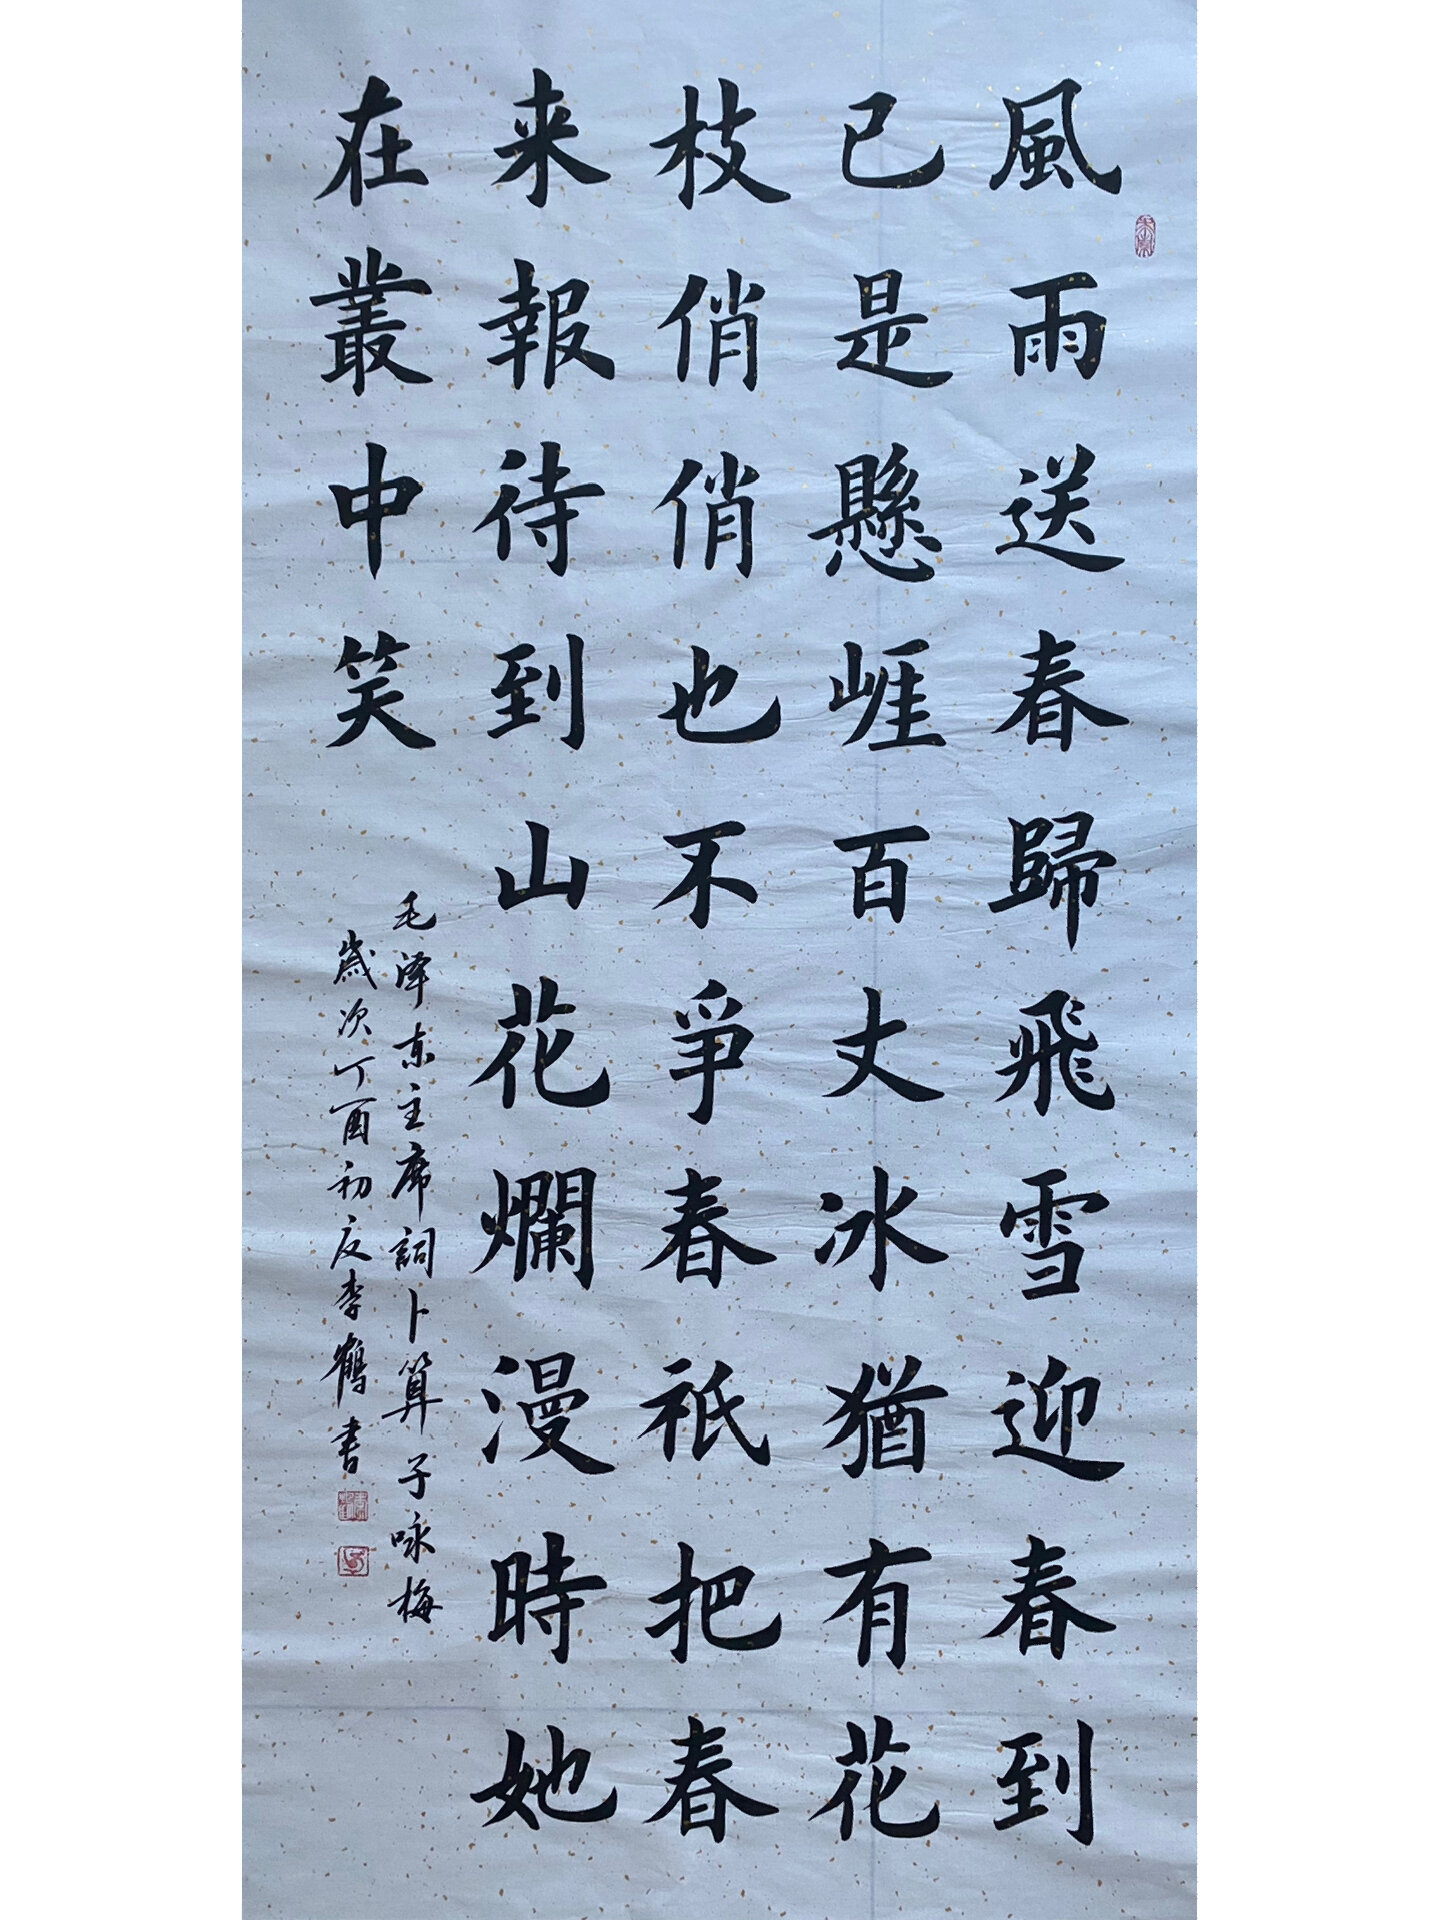 風雨送春歸飛雪迎春到
已是懸崕百丈冰猶有花
枝俏俏也不爭春祇把春
来報待到山花爛漫時她
在叢中笑
毛泽东主席詞卜算子咏梅
歲次丁酉初夏李鶴書